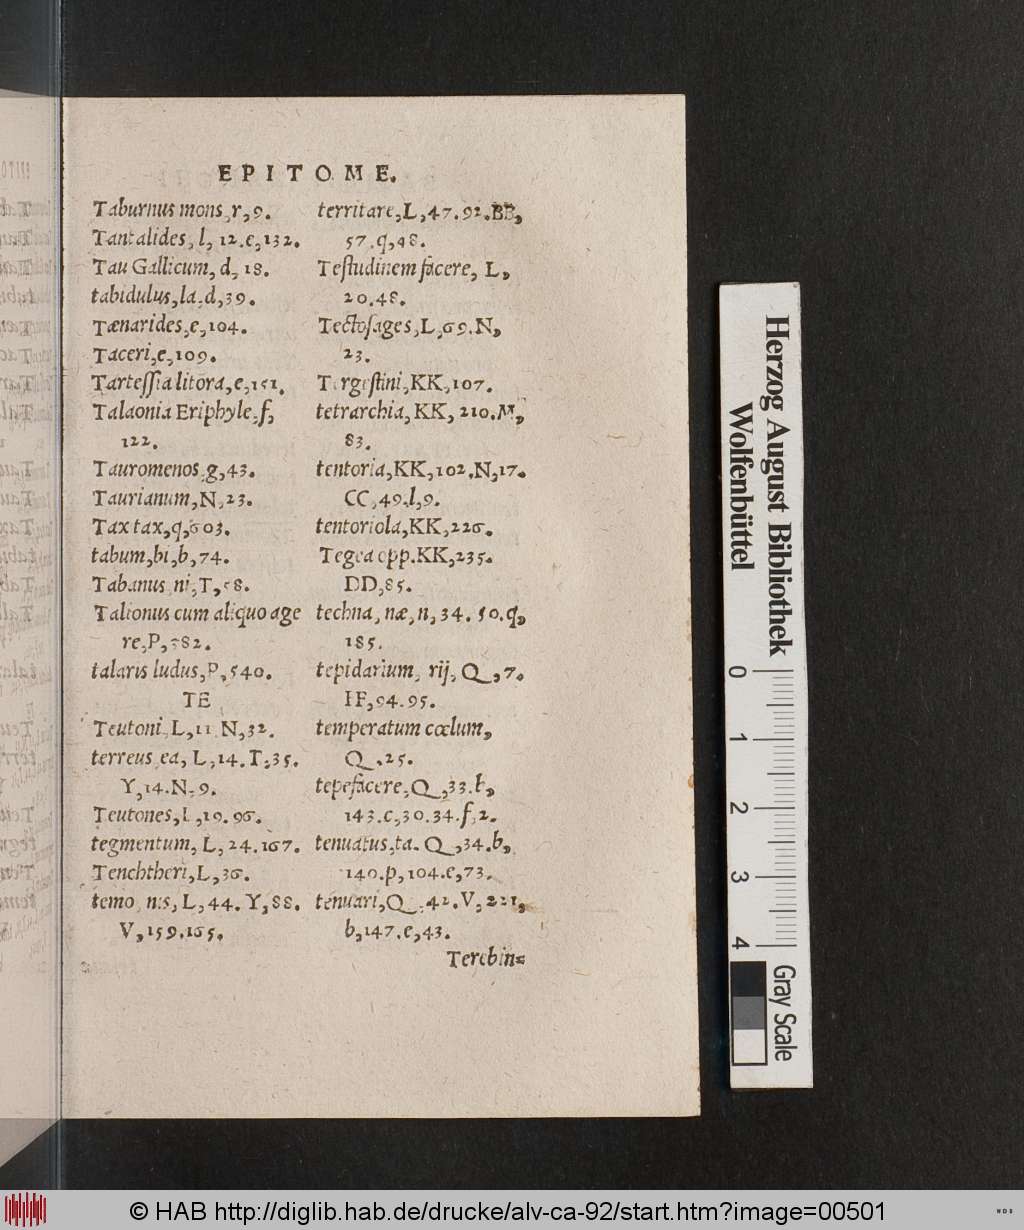 EPITOME.
Taburnus mons, r, 9.
Tantalides, l, 12. e, 132.
Tau Gallicum, d, 18.
tabidulus, la. d, 39.
Tænarides, e, 104.
Taceri, e, 109.
Tartessia litora, e, 151.
Talaonia Eriphyle, f,
122.
Tauromenos, g, 43.
Taurianum, N, 23.
Tax tax, q, 603.
tabum, bi, b, 74.
Tabanus, ni, T, 58.
Talionus cum aliquo age
re, P, 582.
talaris ludus, P, 540.
TE
Teutoni, L, 11. N, 32.
terreus, ea, L, 14. T, 35.
Y, 14. N, 9.
Teutones, L, 19. 96.
tegmentum, L, 24. 167.
Tenchtheri, L, 36.
temo, nis, L, 44. Y, 88.
V, 159. 165.
territare, L, 47. 92. BB,
57. q, 48.
Teſtudinem facere, L,
20. 48.
Tectoſages, L, 69. N,
23.
Tergeſtini, KK, 107.
tetrarchia, KK, 210. M,
83.
tentoria, KK, 102. N, 17.
CC, 49. l, 9.
tentoriola, KK, 226.
Tegea opp. KK, 235.
DD, 85.
techna, næ, n, 34. 50. q,
185.
tepidarium, rij, Q, 7.
FF, 94. 95.
temperatum cœlum,
Q, 25.
tepefacere, Q, 33. b,
143. c, 30. 34. f, 2.
tenuatus, ta. Q, 34. b,
140. p, 104. e, 73.
tenuari, Q, 42. V, 221,
b, 147. e, 43.
Terebin=
Herzog August Bibliothek
Wolfenbüttel
0 1 2 3 4
Gray Scale
© HAB http://diglib.hab.de/drucke/alv-ca-92/start.htm?image=00501